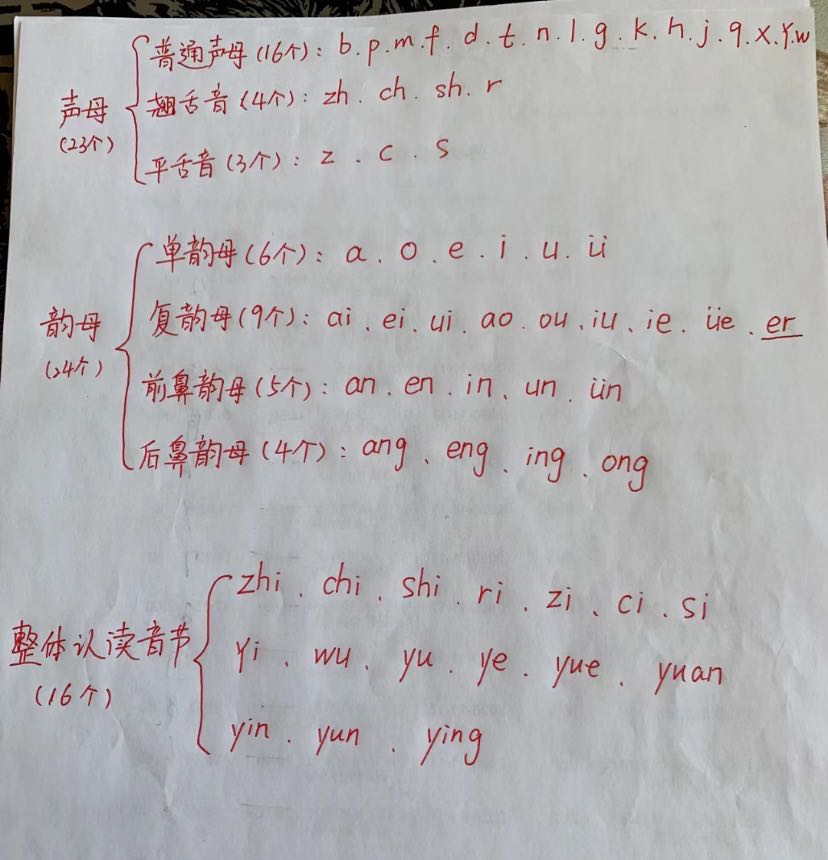 普通声母(16个): b.p.m.f.d.t.n.l.g.k.h.j.q.x.y.w
翘舌音(4个): zh.ch.sh.r
声母
(23个)
平舌音(3个): z.c.s
单韵母(6个): a.o.e.i.u.ü
韵母
(24个)
复韵母(9个): ai、ei、ui、ao.ou、iu、ie.üe.er
前鼻韵母(5个): an、en.in、un.ün
后鼻韵母(4个): ang、eng、ing、ong
zhi、chi、shi.ri、zi、ci.si
整体认读音节
(16个)
yi、wu、yu、ye.yue、yuan
yin.yun、ying